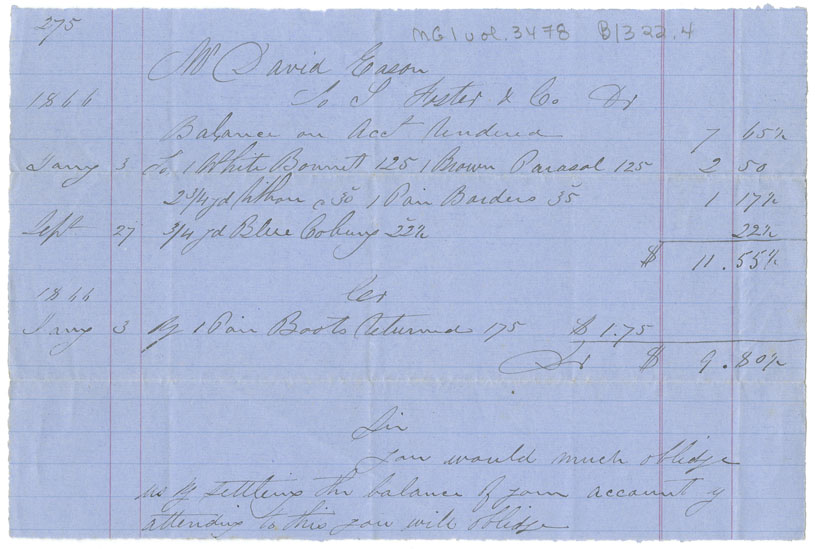 275
MG 1 vol. 3478 B13 22.4
Mr David Eason
1866 To S Foster & Co Dr
Balance on Acct Rendered 7 65½
Jany 3 To 1 White Bonnet 125 1 Brown Parasol 125 2 50
2 3/4 yd @ 30 1 Pair Borders 35 1 17½
Sept 27 3/4 yd Blue Coburg 22½ 22½
$ 11.55½
1866 Cr
Jany 3 By 1 Pair Boots Returned 175 $ 1.75
Dr $ 9.80½
Sir
You would much oblidge
us by settling the balance of your account by
attending to this you will oblidge